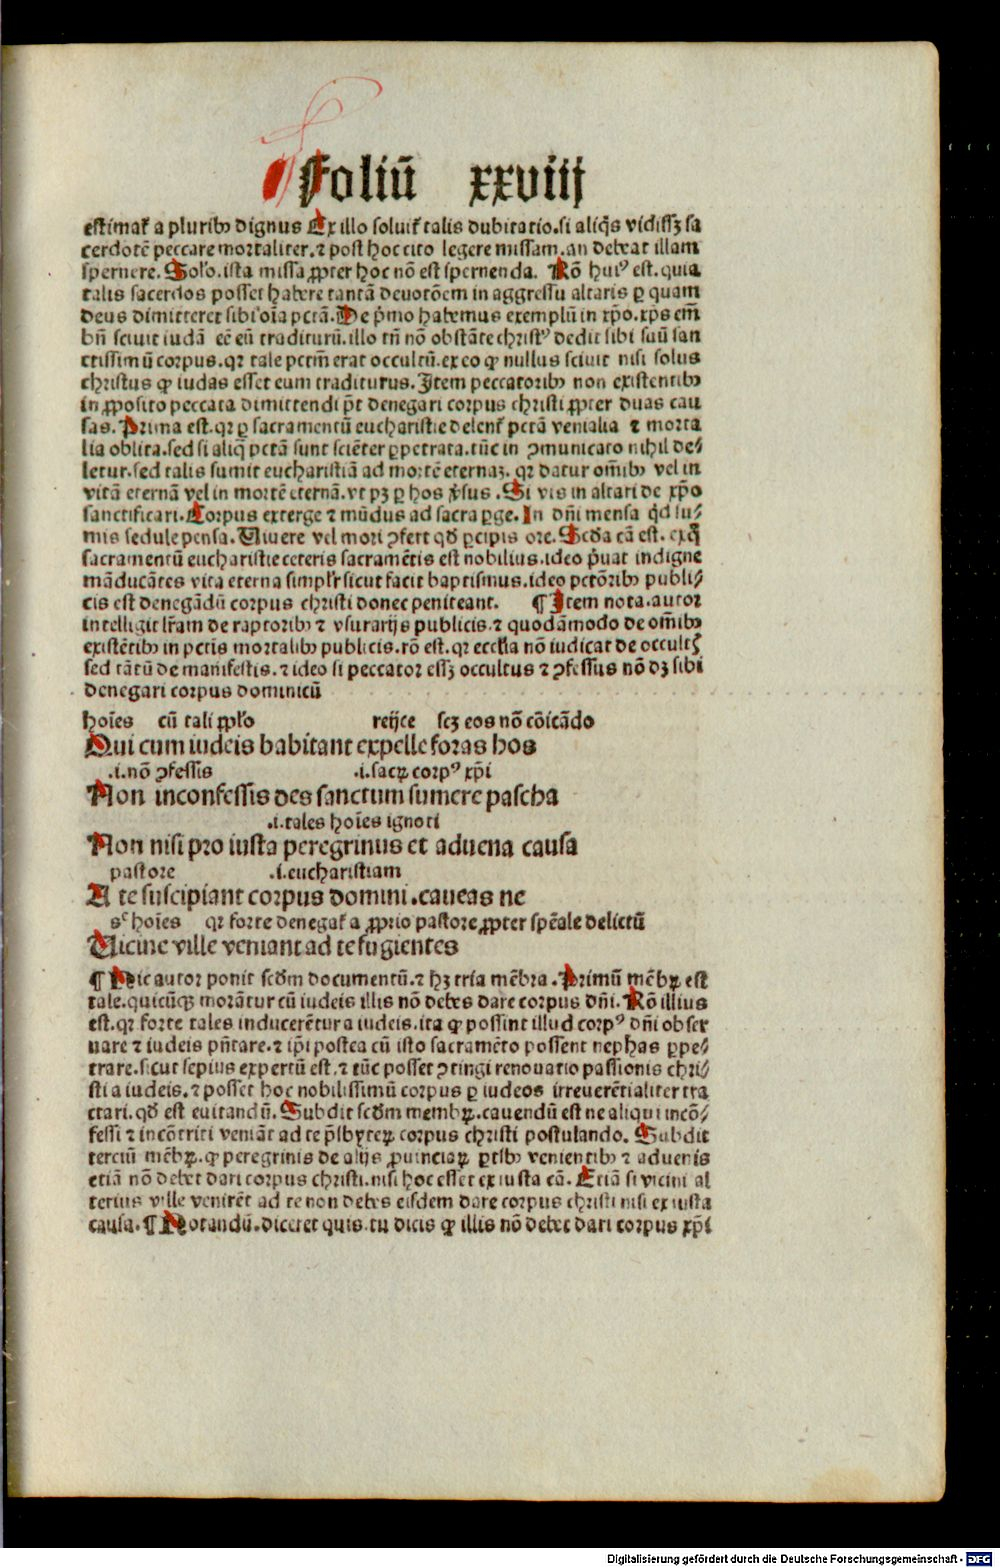 Foliū xxviij
estimat᷑ a pluribꝰ dignus Ex illo soluit᷑ talis dubitatio.si aliqͥs vidissꝫ sa
cerdotē peccare mortaliter.⁊ post hoc cito legere missam.an debeat illam
spernere. Sol̉o.ista missa ꝓpter hoc nō est spernenda. Rō huiꝰ est.quia
talis sacerdos posset habere tantā deuotōem in aggressu altaris ꝑ quam
deus dimitteret sibi oīa pctā.De pͥmo habemus exemplū in xp̄o.xp̄s em̄
bn̄ sciuit iudā eē eū traditurū.illo tn̄ nō obstāte christꝰ dedit sibi suū san
ctissimū corpus.qꝛ tale pctm̄ erat occultū.ex eo ꝙ nullus sciuit nisi solus
christus ꝙ iudas esset eum traditurus.Item peccatoribꝰ non existentibꝰ
in ꝓposito peccata dimittendi pt̄ denegari corpus christi ꝓpter duas cau
sas.Prima est.qꝛ ꝑ sacramentū eucharistie delent᷑ pctā venialia ⁊ morta
lia oblita.sed si aliq̄ pctā sunt sciēter ꝑpetrata.tūc in ꝯmunicato nihil de⸗
letur.sed talis sumit eucharistiā ad mortē eternaꝫ.qꝛ datur om̄ibꝰ vel in
vitā eternā vel in mortē eternā.vt pꝫ ꝑ hos v̓sus .Si vis in altari de xp̄o
sanctificari.Corpus exterge ⁊ mūdus ad sacra ꝑge.In dn̄i mensa qͥd su⸗
mis sedule pensa.Uiuere vel mori ꝯfert qð ꝑcipis ore. Scða cā est. exq̄
sacramentū eucharistie ceteris sacramētis est nobilius.ideo pͥuat indigne
māducātes vita eterna simpl̉r sicut facit baptismus.ideo pctōribꝰ publi⸗
cis est denegādū corpus christi donec peniteant. ¶ Item nota.autor
intelligit lr̄am de raptoribꝰ ⁊ vsurarijs publicis.⁊ quodāmodo de om̄ibꝰ
existētibꝰ in pctīs mortalibꝰ publicis.rō est.qꝛ eccl̉ia nō iudicat de occultꝭ
sed tātū de manifestis.⁊ ideo si peccator essꝫ occultus ⁊ ꝯfessus nō dꝫ sibi
denegari corpus dominicū
hoīes cū tali ppl̉o reijce scꝫ eos nō cōicādo
Qui cum iudeis habitant expelle foras hos
.i.nō ꝯfessis .i.sacꝝ corpꝰ xp̄i
Non inconfessis des sanctum sumere pascha
.i.tales hoīes ignoti
Non nisi pro iusta peregrinus et aduena causa
pastore .i.eucharistiam
A te suscipiant corpus domini.caueas ne
sᶜ hoīes qꝛ forte denegat᷑ a ꝓprio pastore ꝓpter spēale delictū
Uicine ville veniant ad te fugientes
¶ Hic autor ponit scðm documentū.⁊ hꝫ tria mēbra .Primū mēbꝝ est
tale.quicūqꝫ morātur cū iudeis illis nō debes dare corpus dn̄i.Rō illius
est.qꝛ forte tales inducerētur a iudeis.ita ꝙ possint illud corpꝰ dn̄i obser
uare ⁊ iudeis pn̄tare.⁊ ip̄i postea cū isto sacramēto possent nephas ꝑpe⸗
trare.sicut sepius expertū est.⁊ tūc posset ꝯtingi renouatio passionis chri⸗
sti a iudeis.⁊ posset hoc nobilissimū corpus ꝑ iudeos irreuerētialiter tra
ctari.qð est euitandū.Subdit scðm membꝝ.cauendū est ne aliqui incō⸗
fessi ⁊ incōtriti veniāt ad te p̄sbyteꝝ corpus christi postulando. Subdit
tertiū mēbꝝ.ꝙ peregrinis de alijs ꝓuinciaꝝ ꝑtibꝰ venientibꝰ ⁊ aduenis
etiā nō debet dari corpus christi.nisi hoc esset ex iusta cā. Etiā si vicini al
terius ville venirēt ad te non debes eisdem dare corpus christi nisi ex iusta
causa.¶ Notandū.diceret quis.tu dicis ꝙ illis nō debet dari corpus xp̄i
Digitalisierung gefördert durch die Deutsche Forschungsgemeinschaft - DFG